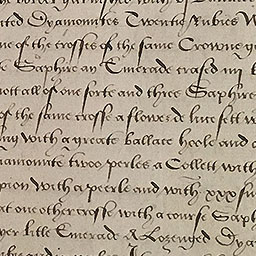 sted Dyamountes Twentie Rubies
one of the crosses of the same Crowne
Saphire an Emerade crased
not all of one sorte and three Saphire
of the same crosse a flowre de luce sett
ing with a greate ballace hoole and
Dyamounte twoo perles a Collett with
with a peerle and with xxx
at one other crosse with a course Saph
litle Emerade A Lozenged Dya